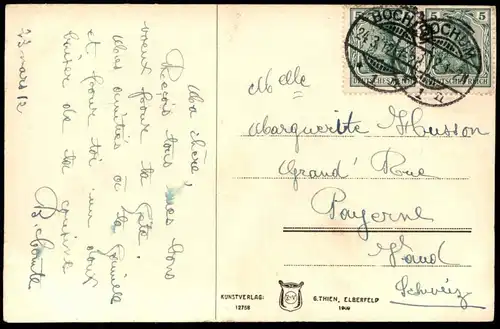 23 mars 12
Ma chère!
Reçois tous mes bons
voeux pour ta fête.
Mes amitiés à la famille
et pour toi un doux
baiser de ta cousine
5 5
BOCHUM BOCHUM
24.3.12
DEUTSCHES REICH DEUTSCHES REICH
Melle
Marguerite Husson
Grand' Rue
Payerne
Vaud
Schweiz
KUNSTVERLAG: G. THIEN, ELBERFELD
12758